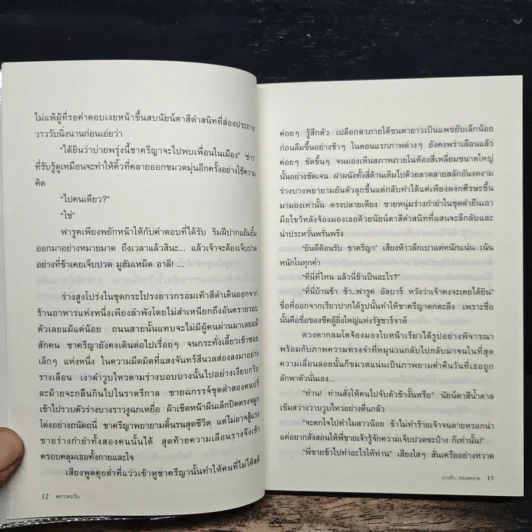 ไม่แพ้ผู้ที่รอคำตอบเงยหน้าขึ้นสบนัยน์ตาสีดำสนิทที่ส่องประกาย
วาววับนิ่งนานก่อนเอ่ยว่า
“ได้ยินว่าบ่ายพรุ่งนี้ชาครียาจะไปพบเพื่อนในเมือง”
ที่รับรู้ดูเหมือนจะทำให้คิ้วที่คลายออกขมวดมุ่นอีกครั้งอย่างใช้ความ
คิด
“ไปคนเดียว?”
“ใช่”
ฟารูคเพียงพยักหน้าให้กับคำตอบที่ได้รับ ริมฝีปากแย้มยิ้ม
ออกมาอย่างหมายมาด ถึงเวลาแล้วสินะ... แล้วเจ้าจะต้องเจ็บปวด
อย่างที่ข้าเคยเจ็บปวด มูฮัมเหม็ด อาลี! ...
ร่างสูงโปร่งในชุดกระโปรงยาวกรอมเท้าสีดำเดินออกจาก
ร้านอาหารแห่งหนึ่งเพียงลำพังโดยไม่สำเหนียกถึงอันตรายรอบ
ตัวเลยแม้แต่น้อย ถนนสายนั้นแทบจะไม่มีผู้คนผ่านมาเลยแม้
สักคน ชาครียายังคงเดินต่อไปเรื่อยๆ จนกระทั่งเลี้ยวเข้าซอย
เล็กๆ แห่งหนึ่ง ในความมืดมิดที่แสงจันทร์สีนวลส่องลงมาอย่าง
รางเลือน เงาดำวูบไหวตามร่างบอบบางนั้นไปอย่างเงียบกริบ
ละม้ายจะกลืนกินไปในราตรีกาล ชายฉกรรจ์ชุดดำสองคนปรี่
เข้าไปรวบตัวร่างบางราวงูฉกเหยื่อ ผ้าเช็ดหน้าผืนเล็กปิดตรงจมูก
โด่งอย่างถนัดถนี่ ชาครียาพยายามดิ้นรนสุดชีวิต แต่ไม่อาจสู้แรง
ชายร่างกำยำทั้งสองคนนั้นได้ สุดท้ายความเลือนรางจึงเข้า
ครอบคลุมเธอทั้งกายและใจ
เสียงพูดคุยต่ำที่แว่วเข้าหูชาครียานั้นทำให้คนที่ไม่ได้สติ
12 พราวตะวัน
ค่อยๆ รู้สึกตัว เปลือกตาภายใต้ขนตายาวเป็นแพขยับเล็กน้อย
ก่อนลืมขึ้นอย่างช้าๆ ในตอนแรกภาพต่างๆ ยังคงพร่าเลือนแล้ว
ค่อยๆ ชัดขึ้นๆ จนมองเห็นสภาพภายในห้องสี่เหลี่ยมขนาดใหญ่
นั้นอย่างชัดเจน ฝาผนังทั้งสี่ด้านเต็มไปด้วยลวดลายสลักอันงดงาม
ร่างบางพยายามยันตัวลุกขึ้นแต่กลับทำได้แค่เพียงผงกศีรษะขึ้น
มามองเท่านั้น ตรงปลายเตียง ชายหนุ่มร่างกำยำในชุดดำยืนเอา
มือไขว้หลังจ้องมองเธอด้วยนัยน์ตาสีดำสนิทที่แสนจะลึกลับและ
น่าประหวั่นพรั่นพรึง
“ยินดีต้อนรับ ชาครียา” เสียงห้าวลึกเบาแต่หนักแน่น เน้น
หนักในทุกคำ
“ที่นี่ที่ไหน แล้วนี่ข้าเป็นอะไร?”
“ที่นี่บ้านข้า ข้า...ฟารูค อัลบารี หวังว่าเจ้าคงจะเคยได้ยิน”
ชื่อที่ออกจากเรียวปากได้รูปนั้นทำให้ชาครียาตกตะลึง เพราะชื่อ
นั้นคือชื่อของชีคผู้ยิ่งใหญ่แห่งรัฐซาร์จาห์
ดวงตากลมโตจ้องมองใบหน้าเรียวได้รูปอย่างพิจารณา
พร้อมกับภาพความทรงจำที่หมุนวนกลับไปกลับมาจนในที่สุด
ความเลื่อนลอยนั้นก็ขมวดแน่นเป็นภาพยามค่ำคืนวันที่เธอถูก
ลักพาตัวนั่นเอง...
“ท่าน! ท่านสั่งให้คนไปจับตัวข้างั้นหรือ” นัยน์ตาสีน้ำตาล
เข้มสว่างวาบวูบไหวอย่างตื่นกลัว
“จะตกใจไปทำไมสาวน้อย ข้าไม่ทำร้ายเจ้าจนตายหรอกน่า
แค่อยากสั่งสอนให้พี่ชายเจ้ารู้จักความเจ็บปวดซะบ้าง ก็เท่านั้น!”
“พี่ชายข้าไปทำอะไรให้ท่าน” เสียงใสๆ สั่นเครืออย่างหวาด
13